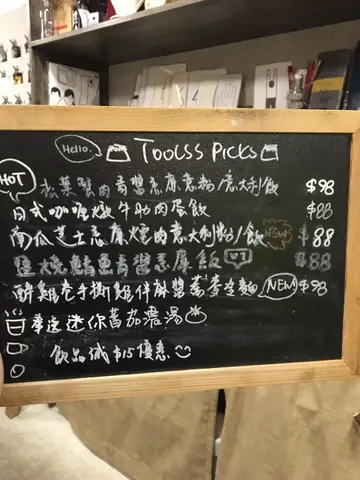 Hello. TOOLSS PICKS
HOT 松葉蟹肉青醬忌廉意粉/意大利飯 $98
日式咖喱燉牛肋肉蛋飯 $88
南瓜芝士忌廉煙肉意大利粉/飯 NEW $88
鹽燒鯖魚青醬忌廉飯 $88
醉雞卷手撕雞伴麻醬蕎麥冷麵 NEW $98
奉送迷你蕃茄濃湯
飲品減$15優惠